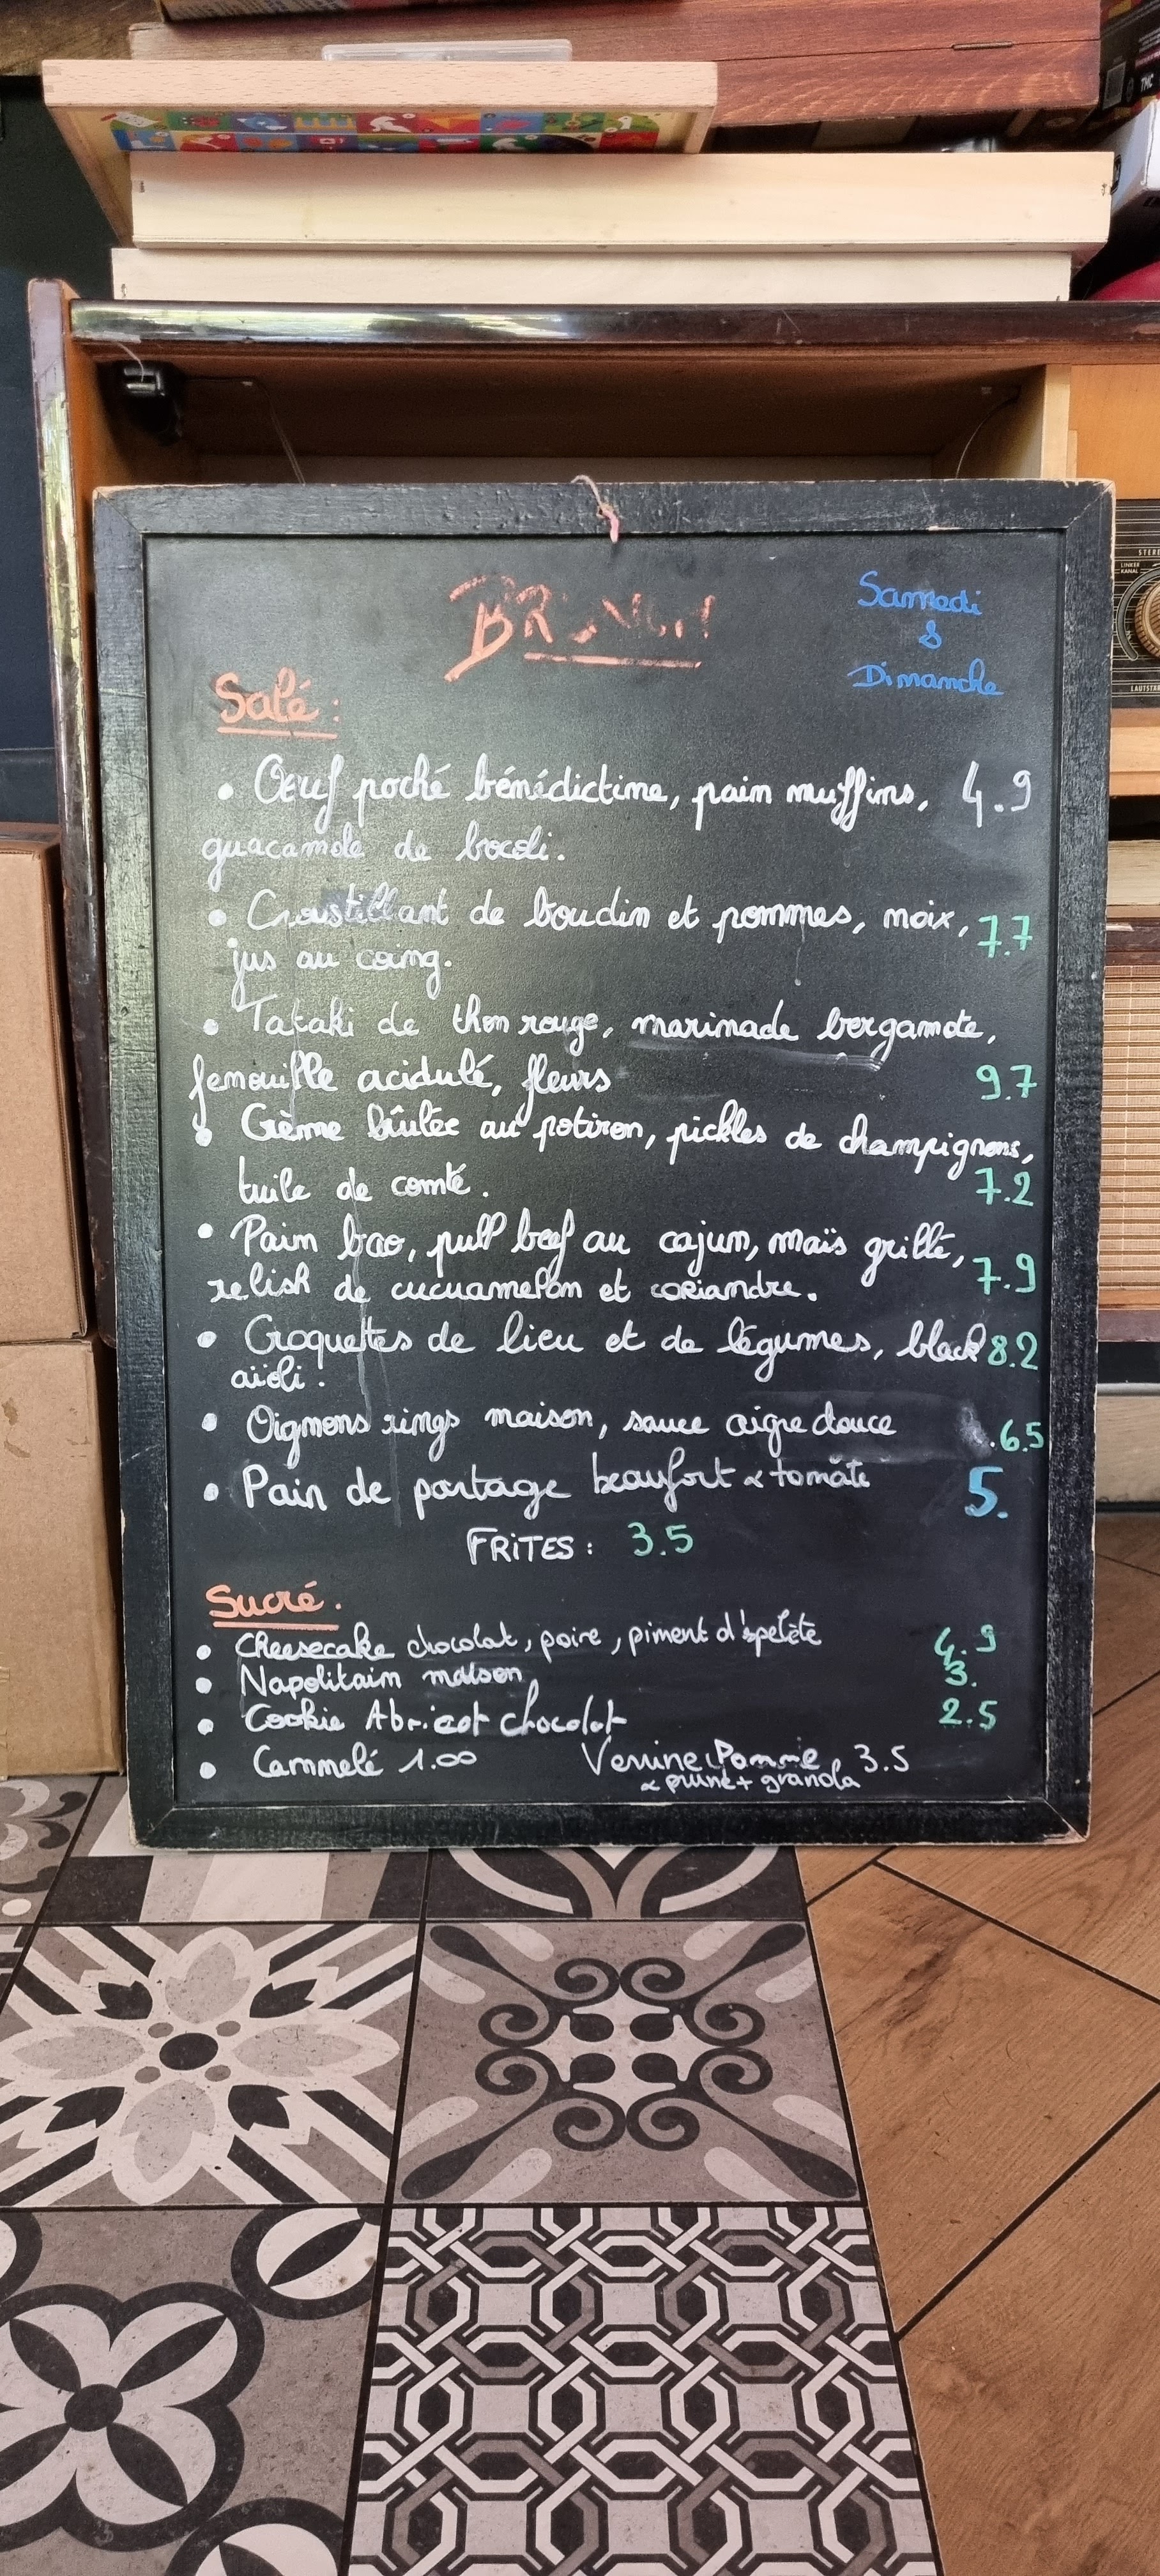 BRUNCH
Samedi
&
Dimanche
Salé :
• Oeuf poché bénédictine, pain muffins, 4.9
guacamole de brocoli.
• Croustillant de boudin et pommes, noix, 7.7
jus au coing.
• Tataki de thon rouge, marinade bergamote,
fenouille acidulé, fleurs 9.7
• Crème brûlée au potiron, pickles de champignons,
tuile de comté. 7.2
• Pain bao, pull beef au cajun, maïs grillé, 7.9
relish de cucuamelon et coriandre.
• Croquettes de lieu et de légumes, black 8.2
aïoli.
• Oignons rings maison, sauce aigre douce .6.5
• Pain de partage beaufort & tomate 5.
FRITES : 3.5
Sucré.
• Cheesecake chocolat, poire, piment d'spelète 4.9
• Napolitain maison 3.
• Cookie Abricot chocolat 2.5
• Cannelé 1.00 Verrine Pomme 3.5
& prune + granola
STERE
LINKER
KANAL
LAUTSTÄR
TMC